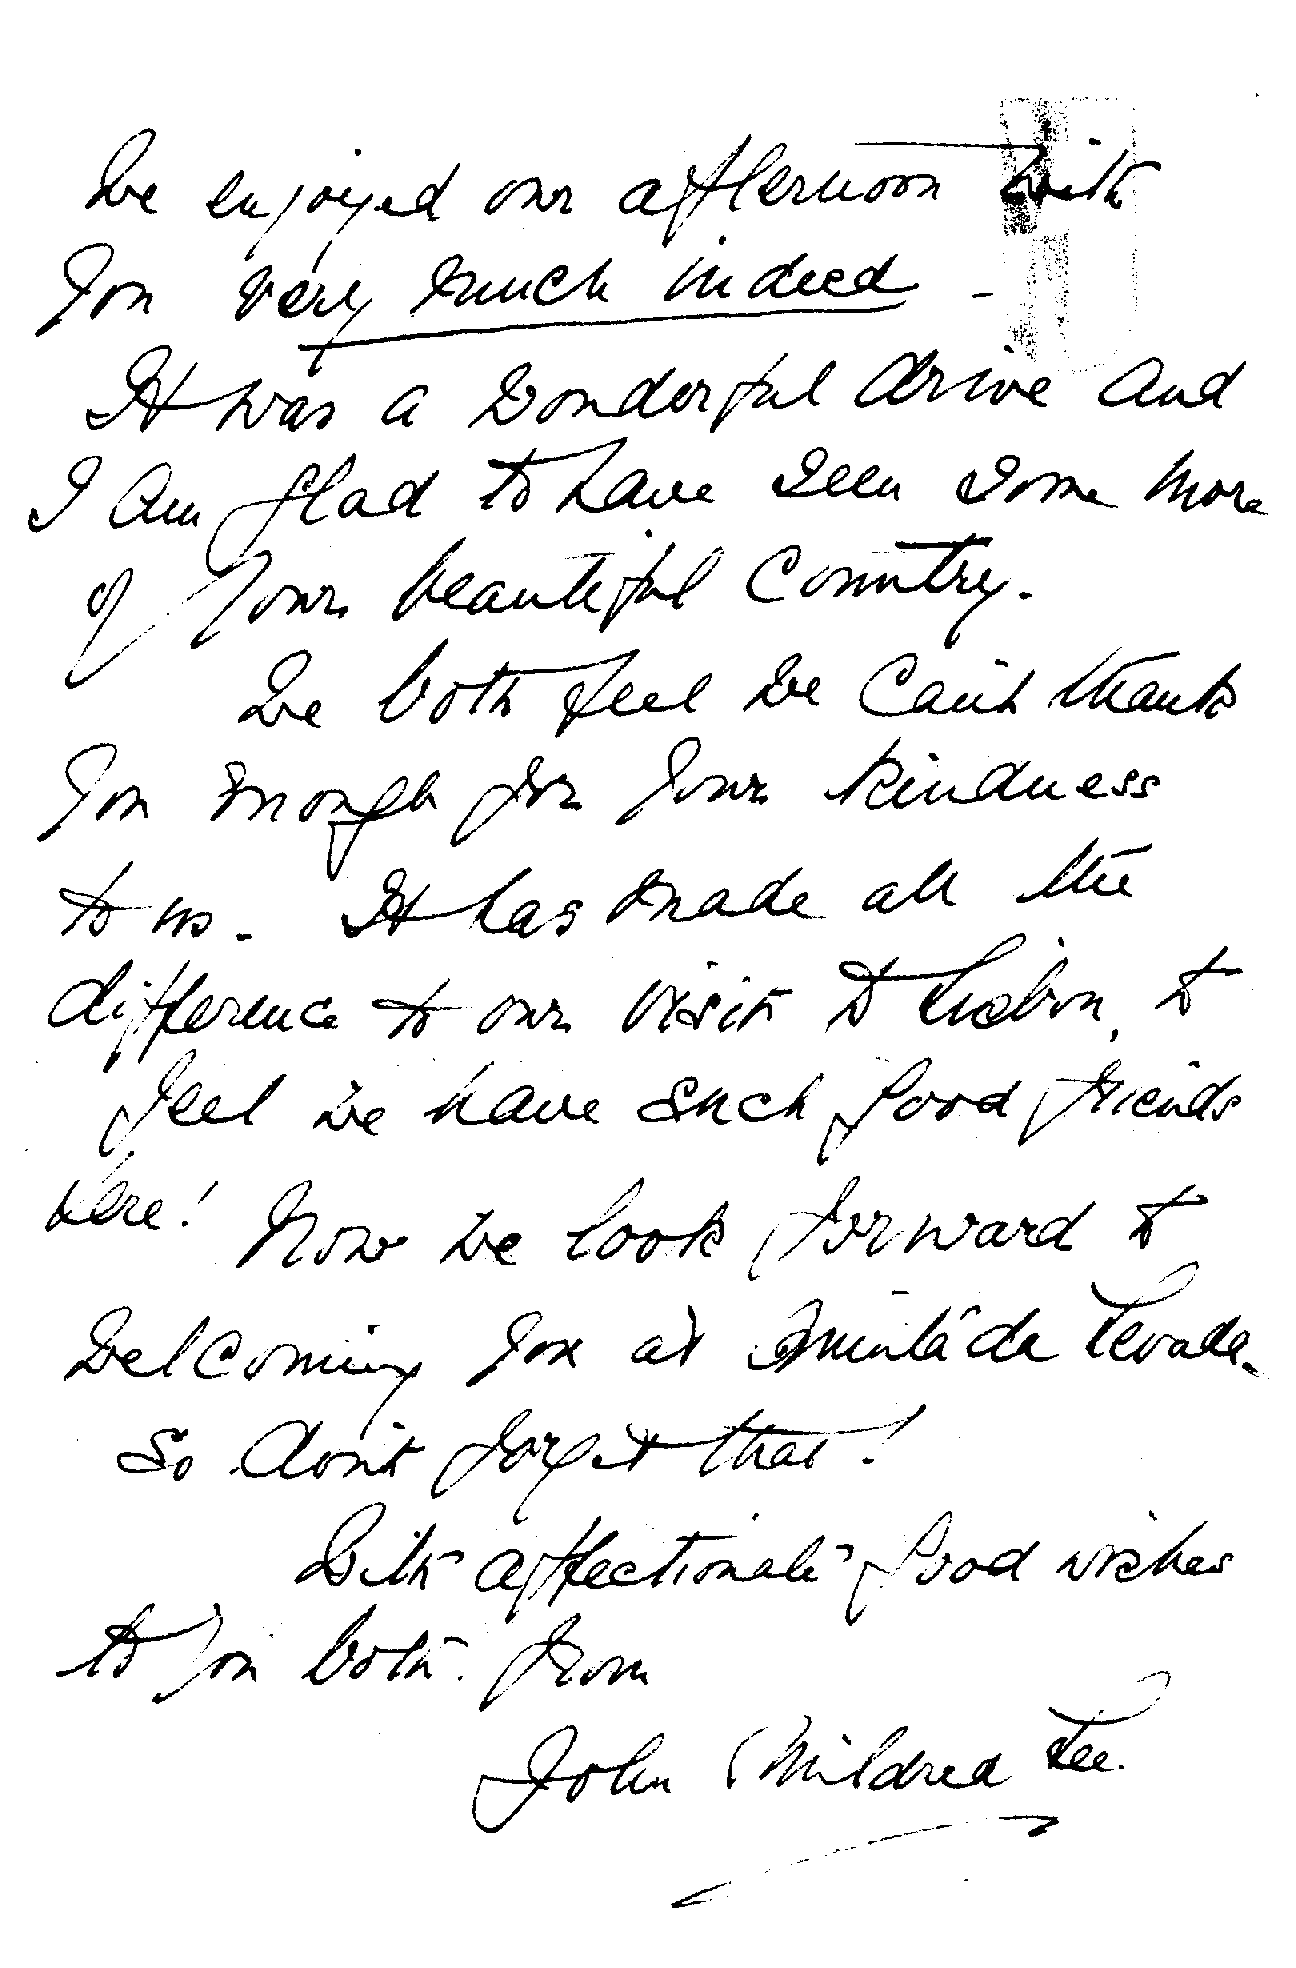 We enjoyed our afternoon with
you very much indeed -
It was a wonderful drive and
I am glad to have seen some more
of your beautiful country.
We both feel we can't thank
you enough for your kindness
to us. It has made all the
difference to our visit to Lisbon, to
feel we have such good friends
here! Now we look forward to
welcoming you at Quinta da Levada.
So don't forget that!
With affectionate good wishes
to you both. from
John & Mildred Lee.